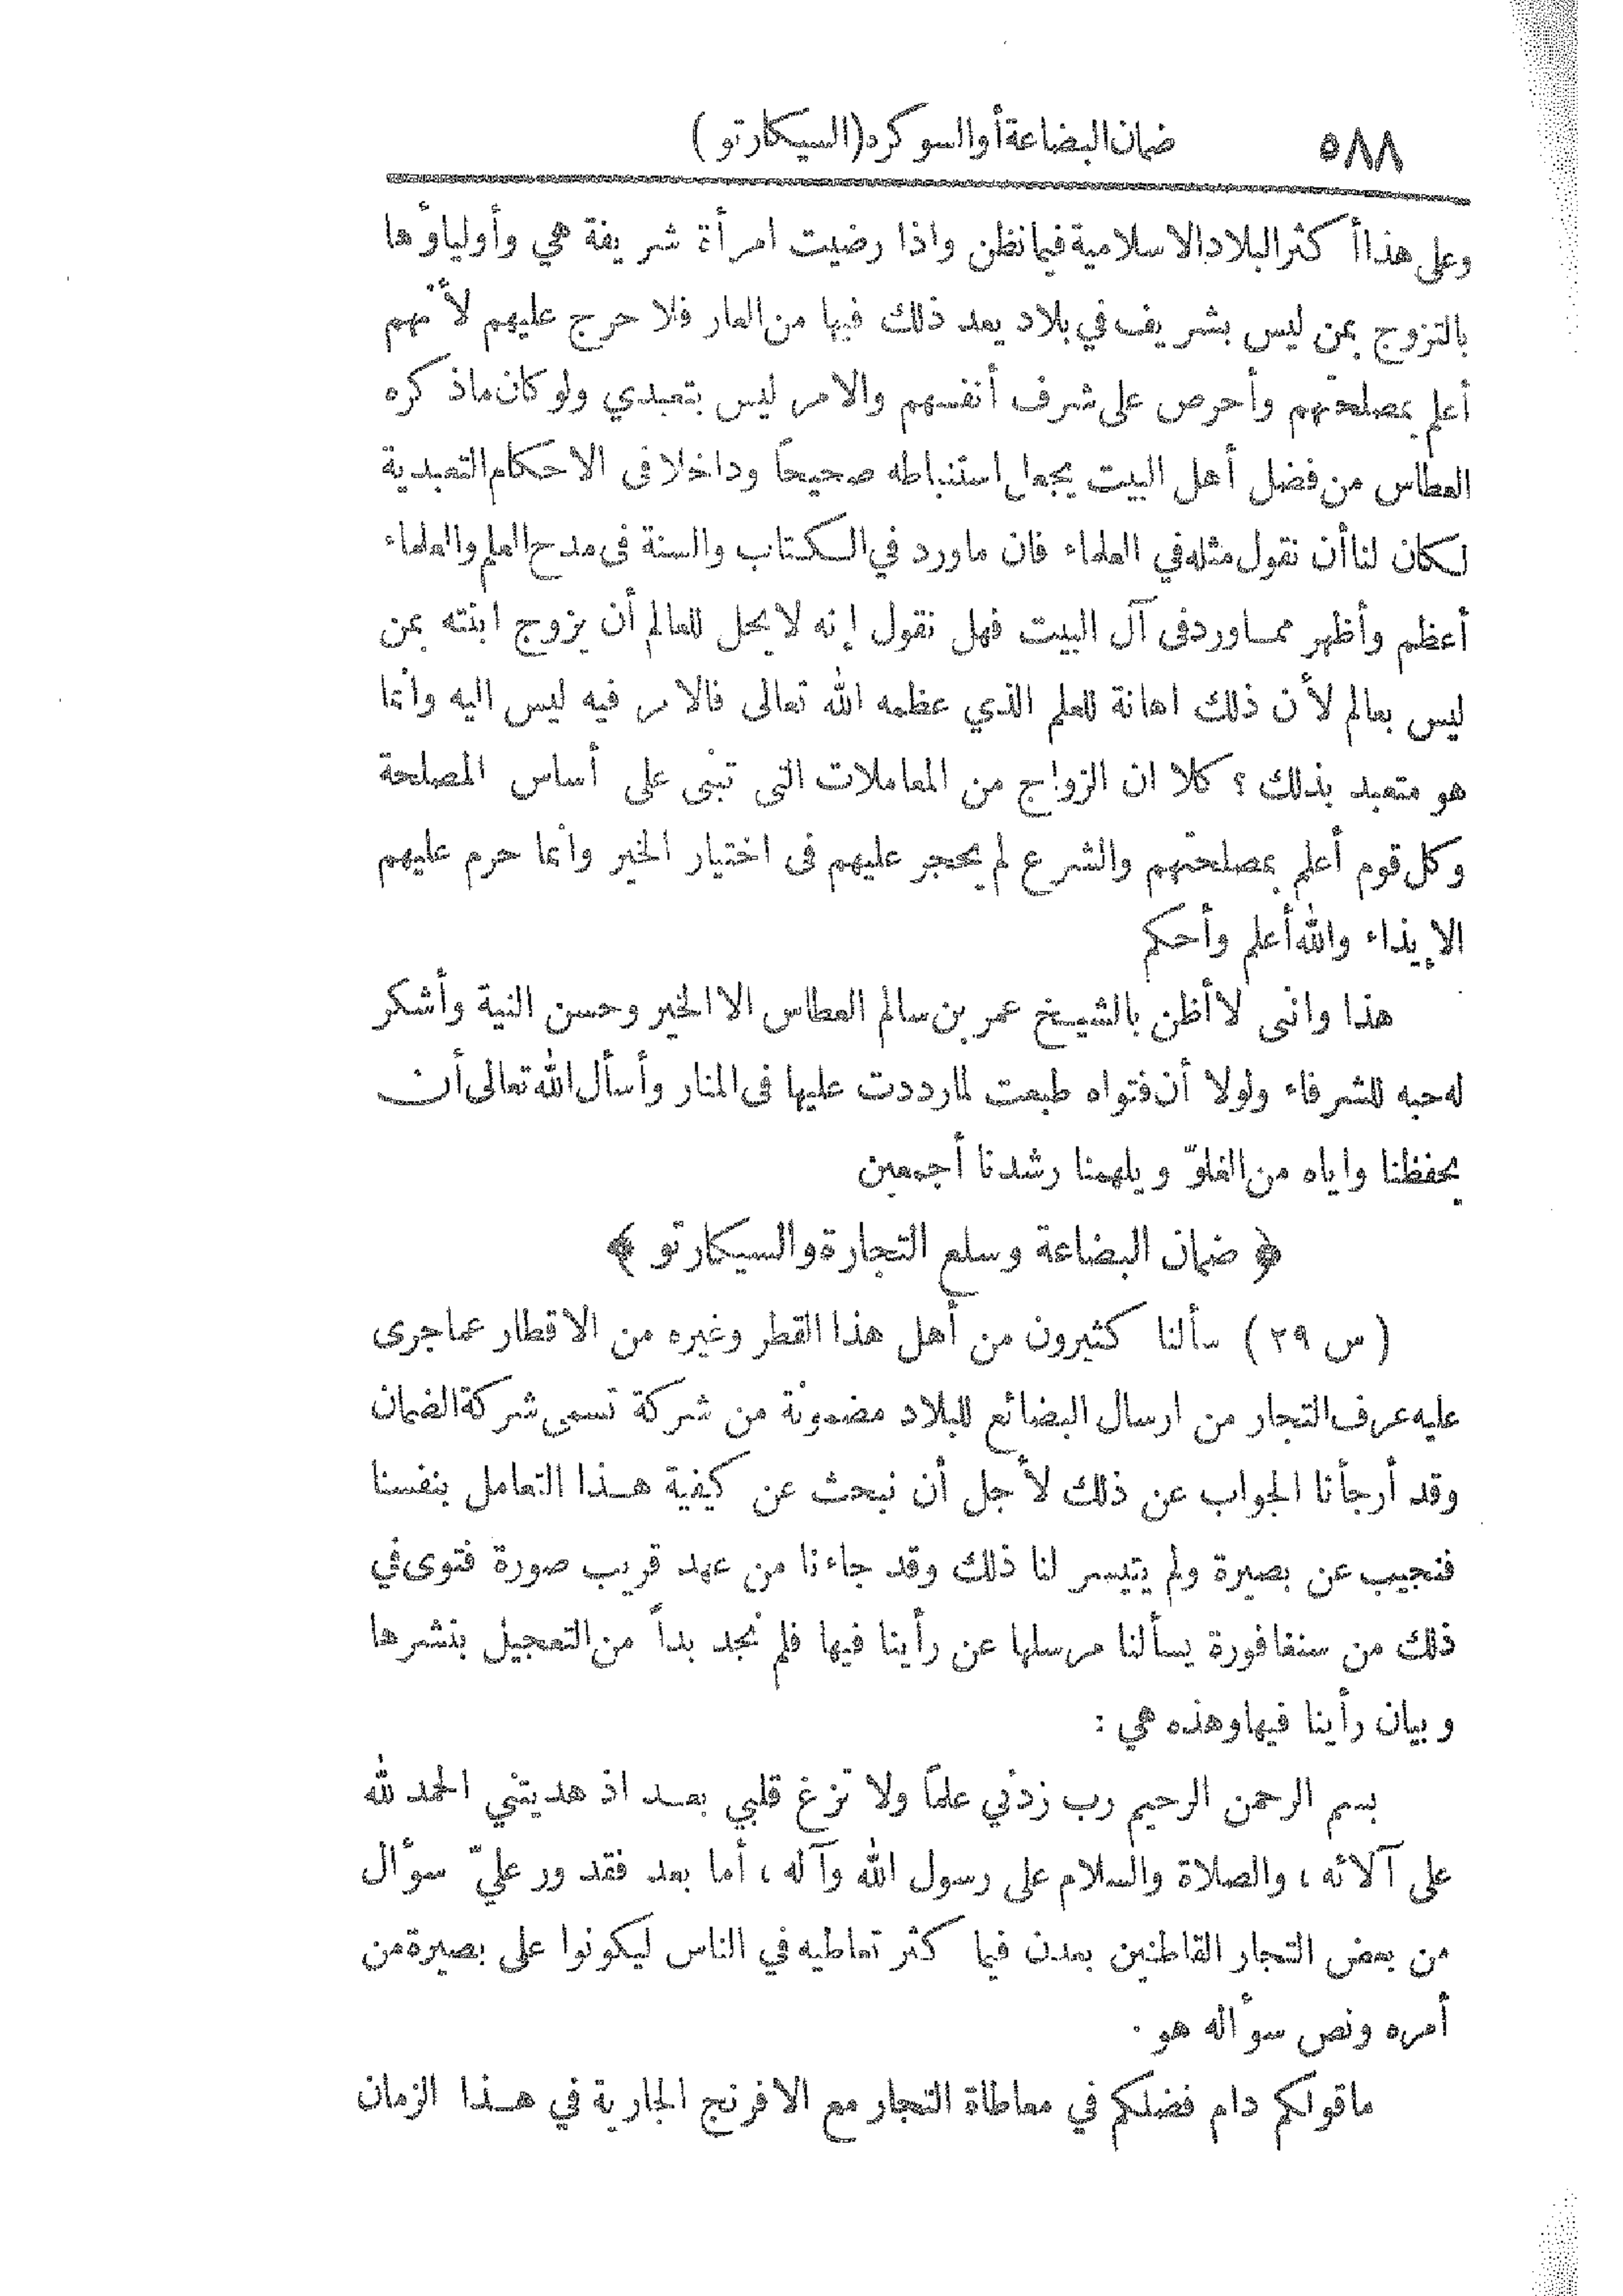 ٥٨٨ ضمان البضاعة أو السوكرد (السيكارتو)
وعلى هذا أكثر البلاد الاسلامية فيما نظن واذا رضيت امرأة شريفة هي وأولياؤها
بالتزوج بمن ليس بشريف في بلاد يعد ذلك فيها من العار فلا حرج عليهم لأنهم
أعلم بمصلحتهم وأحرص على شرف أنفسهم والامر ليس بتعبدي ولو كان ماذكره
العطاس من فضل أهل البيت يجعل استنباطه صحيحاً وداخلا فى الاحكام التعبدية
لكان لنا أن نقول مثله في العلماء فان ماورد في الكتاب والسنة فى مدح العلم والعلماء
أعظم وأظهر مما ورد فى آل البيت فهل نقول إنه لا يحل للعالم أن يزوج ابنته بمن
ليس بعالم لأن ذلك اهانة للعلم الذي عظمه الله تعالى فالامر فيه ليس اليه وانما
هو متعبد بذلك ؟ كلا ان الزواج من المعاملات التى تبنى على أساس المصلحة
وكل قوم أعلم بمصلحتهم والشرع لم يحجر عليهم فى اختيار الخير وانما حرم عليهم
الايذاء والله أعلم وأحكم
هذا وانى لا أظن بالشيخ عمر بن سالم العطاس الا الخير وحسن النية وأشكر
له حبه للشرفاء ولولا أن فتواه طبعت لما رددت عليها فى المنار وأسأل الله تعالى أن
يحفظنا واياه من الغلوّ ويلهمنا رشدنا أجمعين
﴿ ضمان البضاعة وسلع التجارة والسيكارتو ﴾
( س ٢٩ ) سألنا كثيرون من أهل هذا القطر وغيره من الاقطار عما جرى
عليه عرف التجار من ارسال البضائع للبلاد مضمونة من شركة تسمى شركة الضمان
وقد أرجأنا الجواب عن ذلك لأجل أن نبحث عن كيفية هذا التعامل بنفسنا
فنجيب عن بصيرة ولم يتيسر لنا ذلك وقد جاءنا من عهد قريب صورة فتوى في
ذلك من سنغافورة يسألنا مرسلها عن رأينا فيها فلم نجد بداً من التعجيل بنشرها
وبيان رأينا فيها وهذه هي :
بسم الرحمن الرحيم رب زدني علماً ولا تزغ قلبي بعد اذ هديتني الحمد لله
على آلائه ، والصلاة والسلام على رسول الله وآله ، أما بعد فقد ور عليّ سوأل
من بعض التجار القاطنين بعدن فيما كثر تعاطيه في الناس ليكونوا على بصيرة من
أمره ونص سوأله هو .
ماقولكم دام فضلكم في معاطاة التجار مع الافرنج الجارية في هذا الزمان